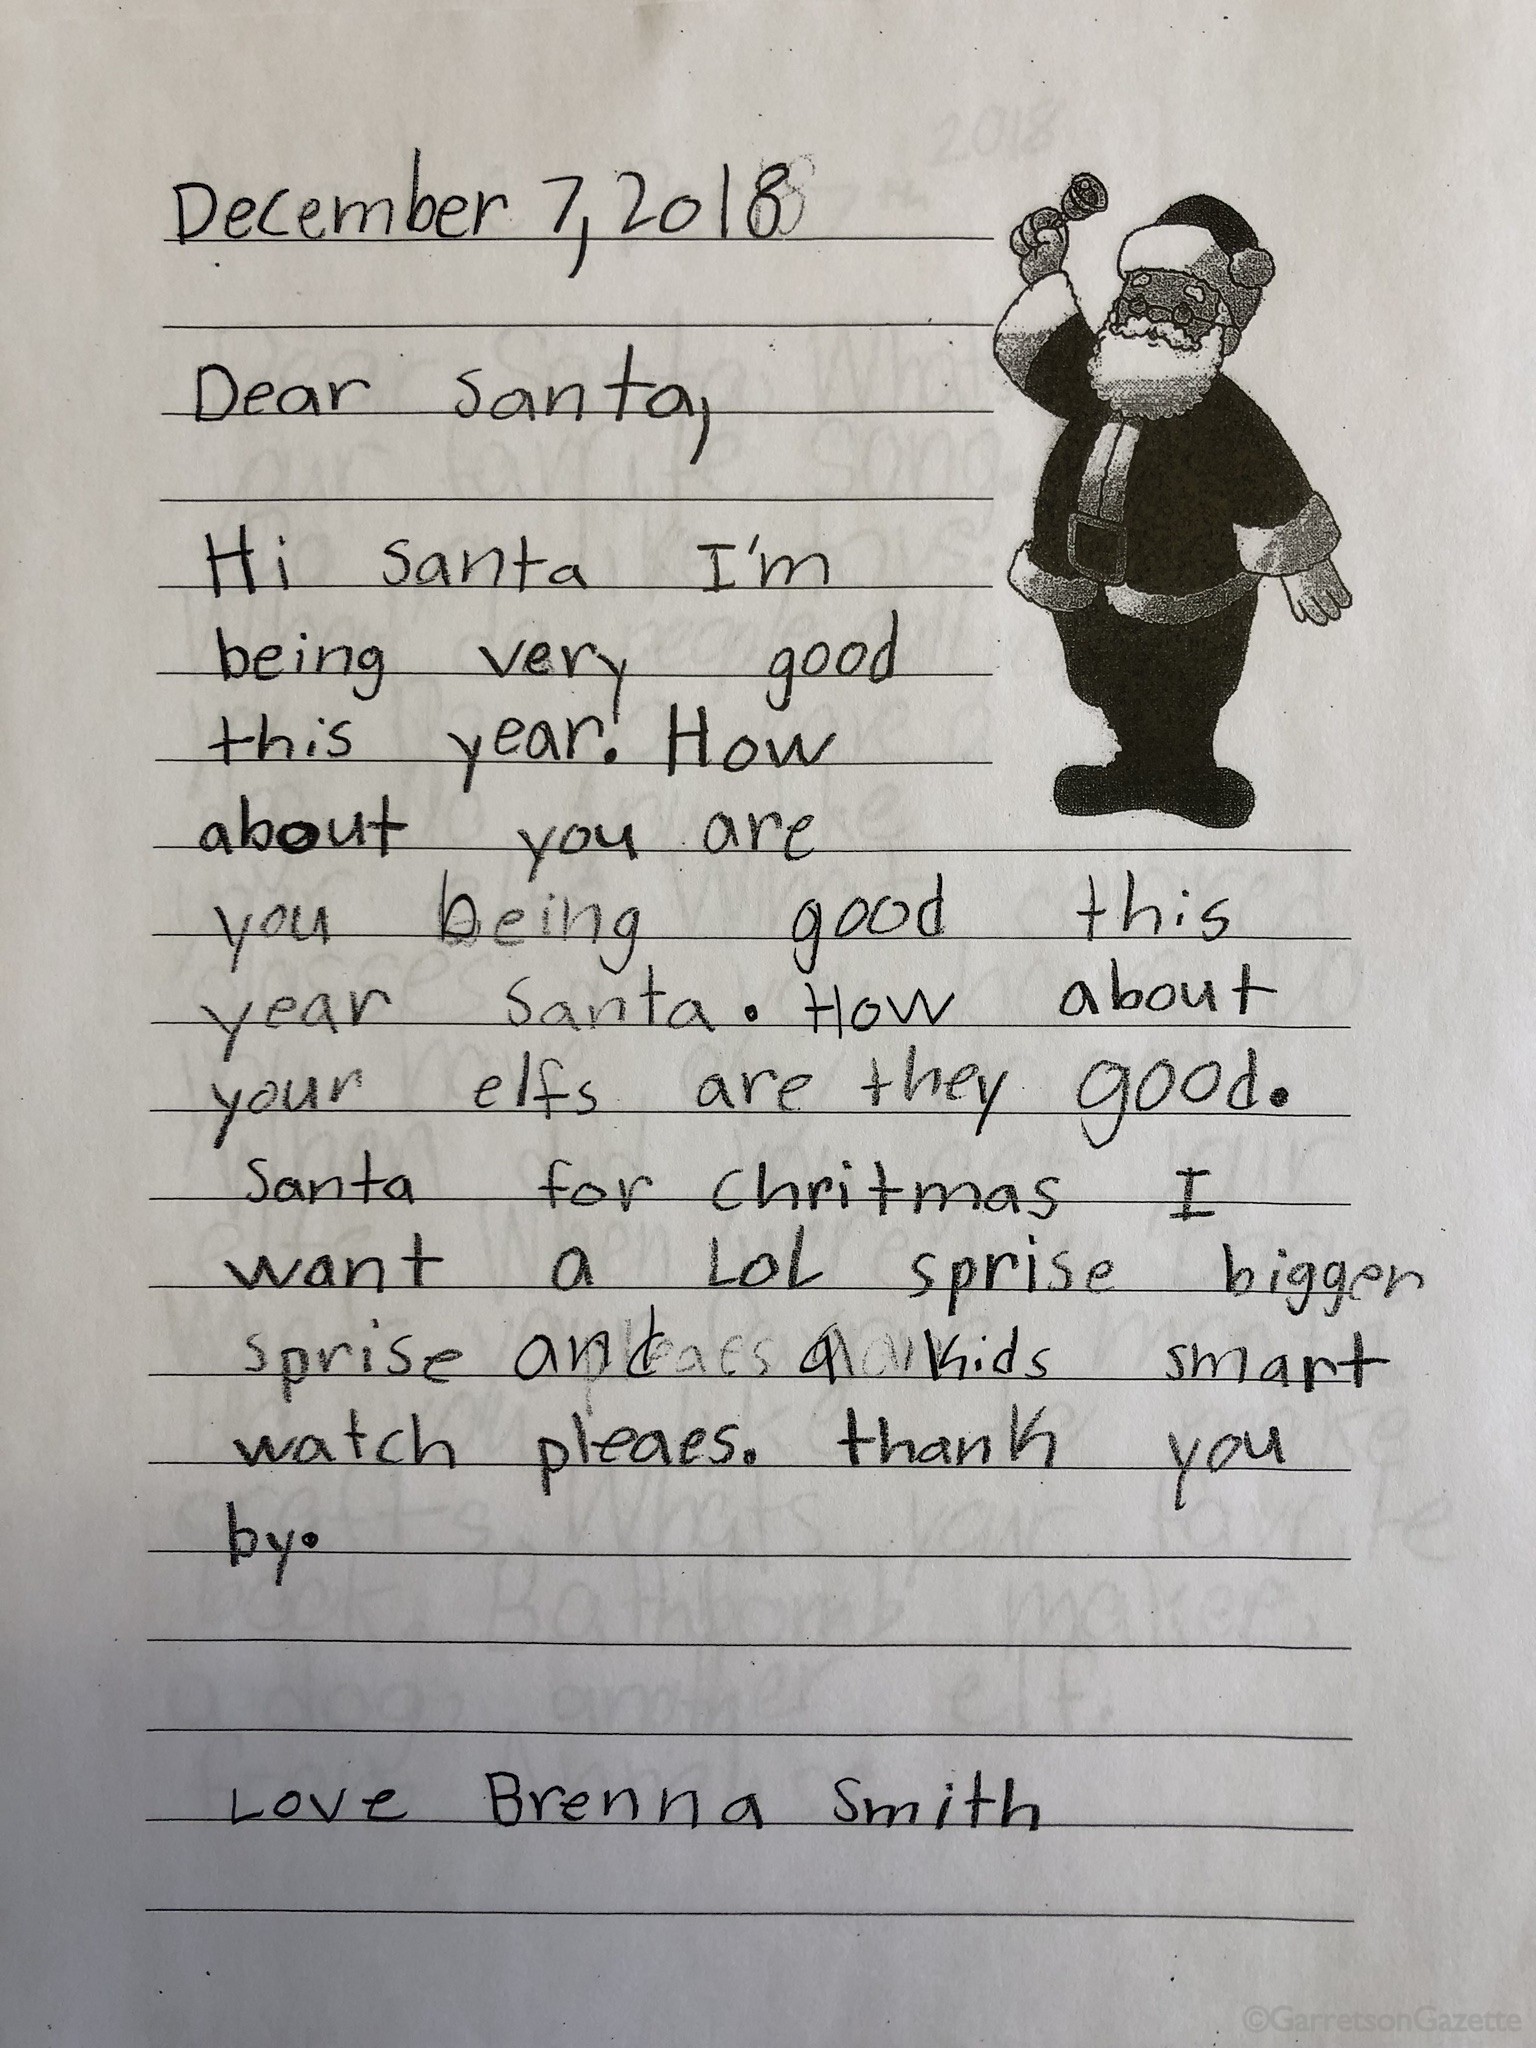 December 7, 2018
Dear Santa,
Hi Santa I'm
being very good
this year! How
about you are
you being good this
year Santa. How about
your elfs are they good.
Santa for Chritmas I
want a LOL sprise bigger
sprise and a kids smart
watch pleaes. thank you
by.
Love Brenna Smith
©GarretsonGazette